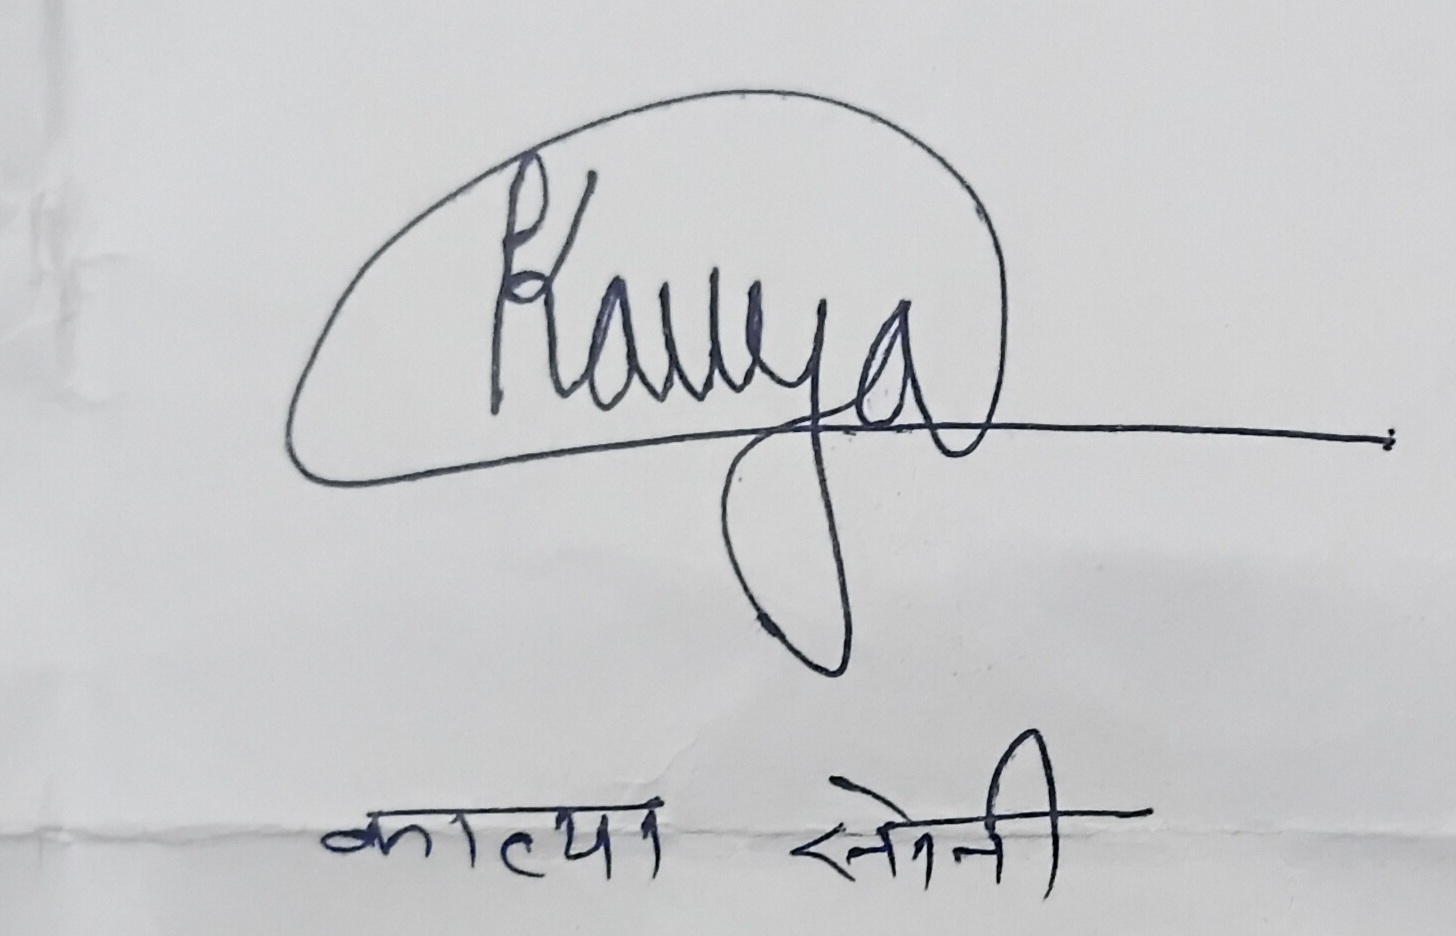 Kavya
काव्या सोनी